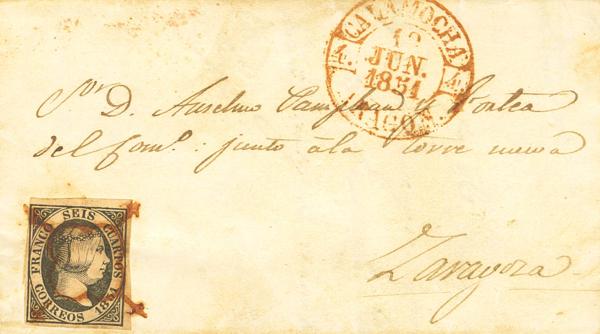 CALAMOCHA
JUN.
1851
ARAGON
Sor. D. Anselmo y
del Com.º: junto á la torre nueva
Zaragoza
FRANCO SEIS CUARTOS
CORREOS 1851